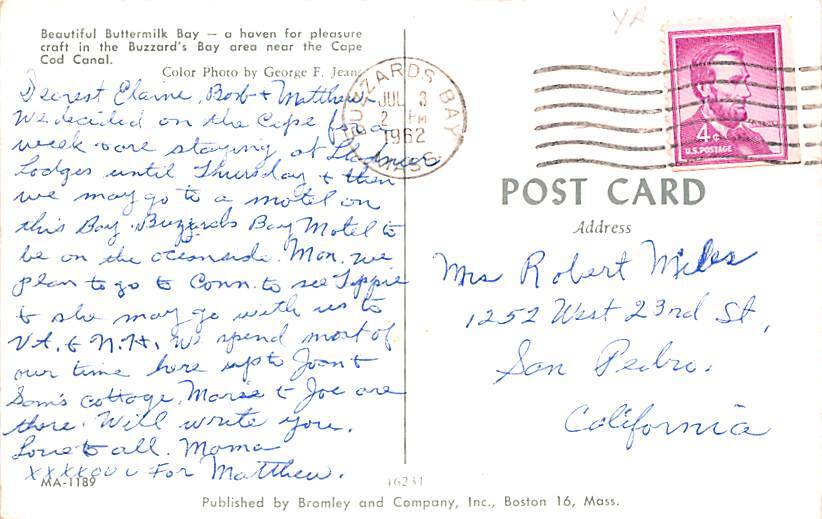 Beautiful Buttermilk Bay — a haven for pleasure
craft in the Buzzard's Bay area near the Cape
Cod Canal.
Color Photo by George F. Jean
Dearest Elaine, Bob + Matthew
We decided on the Cape for a
week + are staying at
Lodges until Thursday + then
we may go to a motel on
this Bay. Buzzards Bay Motel to
be on the oceanside. Mon. we
plan to go to Conn. to see Tippie
+ she may go with us to
VT. + N.H. We spend most of
our time here up to Joan +
Sam's cottage. Marie + Joe are
there. Will write you.
Love to all. Mama
XXXX For Matthew.
MA-1189
BUZZARDS BAY
JUL 3
2 PM
1962
MASS.
4¢
U.S. POSTAGE
POST CARD
Address
Mrs Robert Miles
1252 West 23rd St,
San Pedro,
California
16231
Published by Bromley and Company, Inc., Boston 16, Mass.